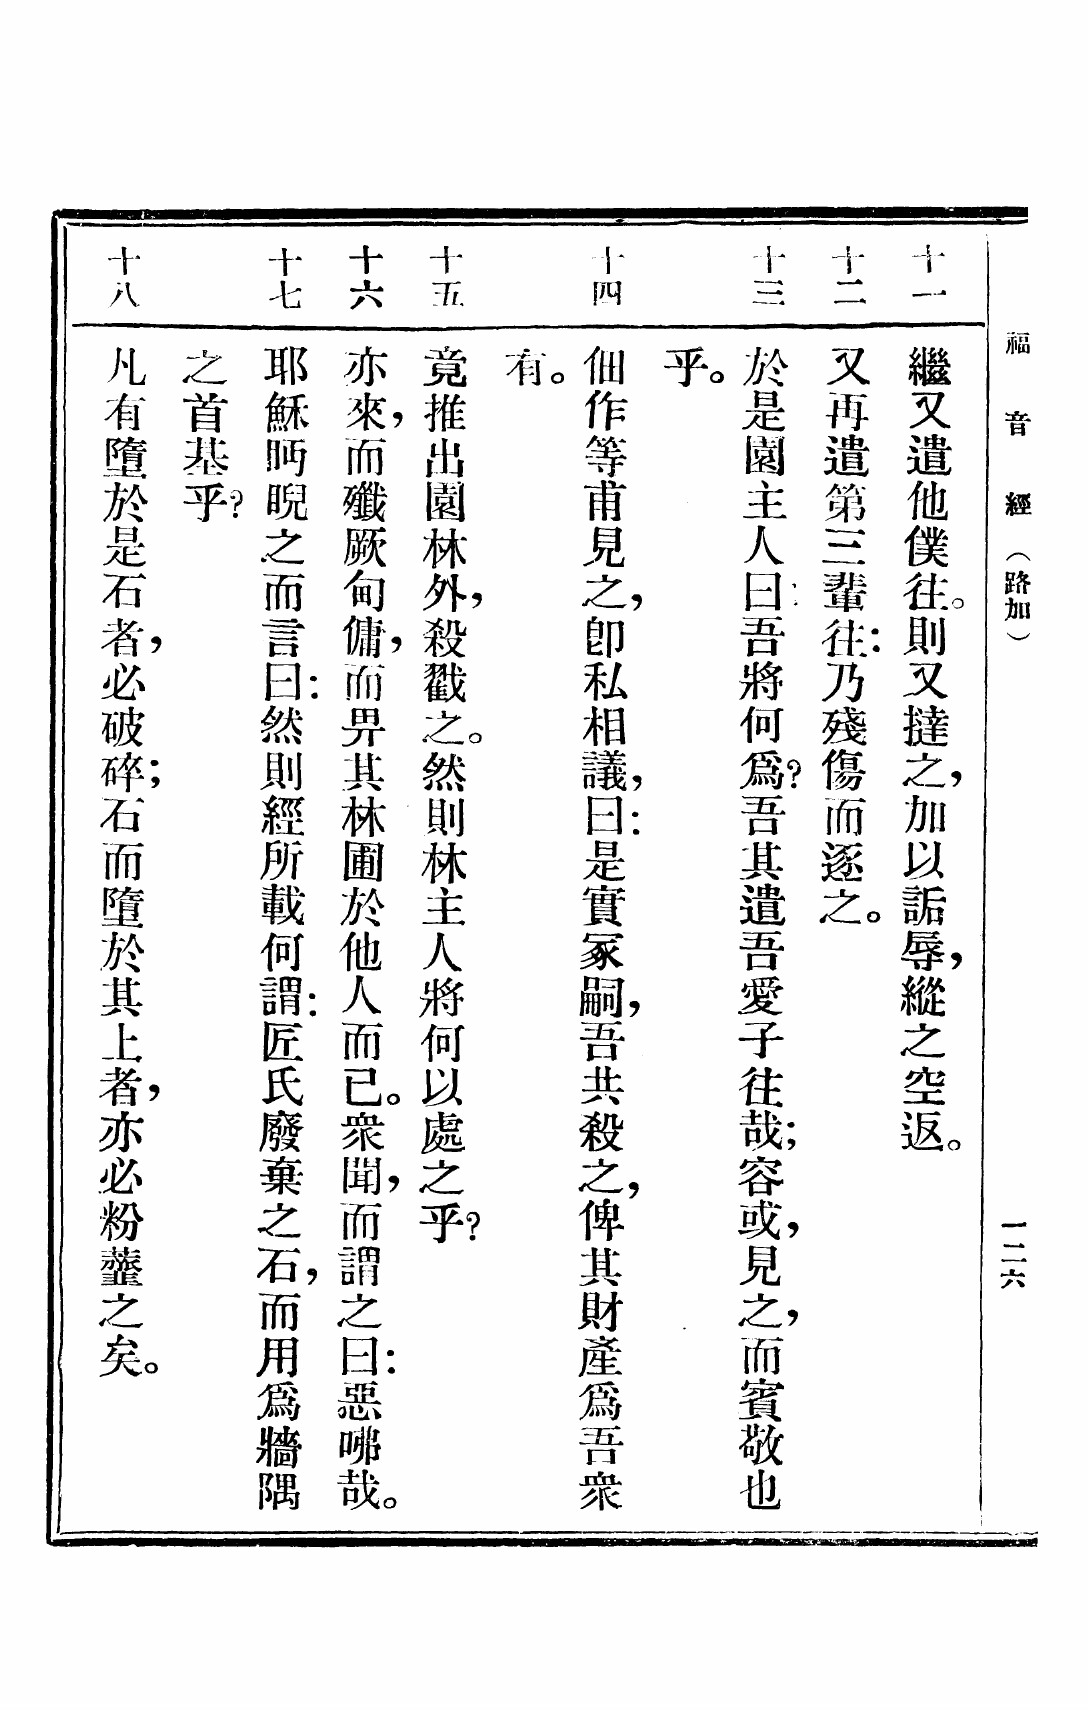 福音經（路加）
一二六
十一
繼又遣他僕往。則又撻之，加以詬辱，縱之空返。
十二
又再遣第三輩往：乃殘傷而逐之。
十三
於是園主人曰：吾將何爲？吾其遣吾愛子往哉；容或，見之，而賓敬也
乎。
十四
佃作等甫見之，卽私相議，曰：是實冢嗣，吾共殺之，俾其財產爲吾衆
有。
十五
竟推出園林外，殺戳之。然則林主人將何以處之乎？
十六
亦來，而殲厥甸傭，而畀其林圃於他人而已。衆聞，而謂之曰：惡咈哉。
十七
耶穌眄睨之而言曰：然則經所載何謂：匠氏廢棄之石，而用爲牆隅
之首基乎？
十八
凡有墮於是石者，必破碎；石而墮於其上者，亦必粉虀之矣。